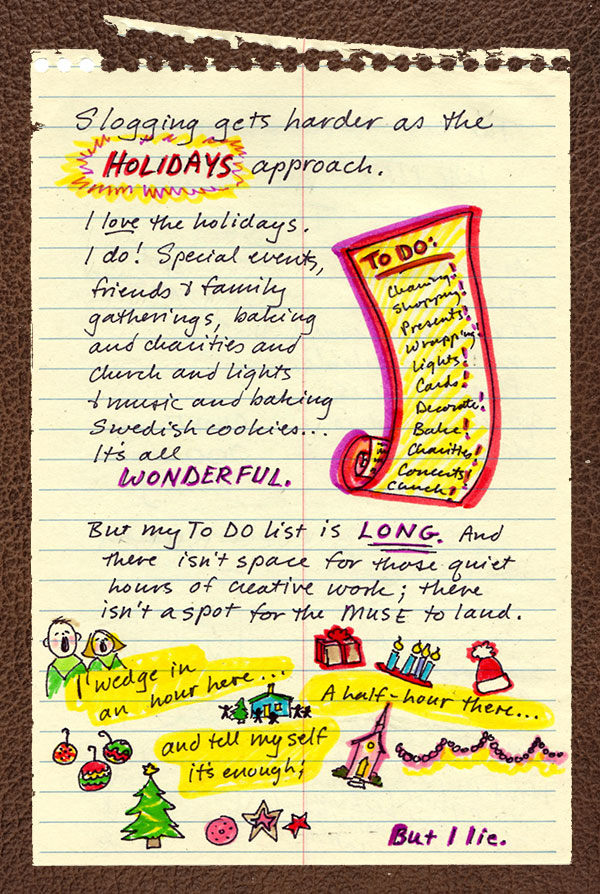 Slogging gets harder as the
HOLIDAYS approach.
I love the holidays.
I do! Special events,
friends & family
gatherings, baking
and charities and
church and lights
& music and baking
Swedish cookies...
It's all
WONDERFUL.
TO DO:
Cleaning!
Shopping!
Presents!
Wrapping!
Lights!
Cards!
Decorate!
Bake!
Charities!
Concerts!
Church!
But my To Do list is LONG. And
there isn't space for those quiet
hours of creative work; there
isn't a spot for the MUSE to land.
I wedge in
an hour here...
A half-hour there...
and tell myself
it's enough;
But I lie.